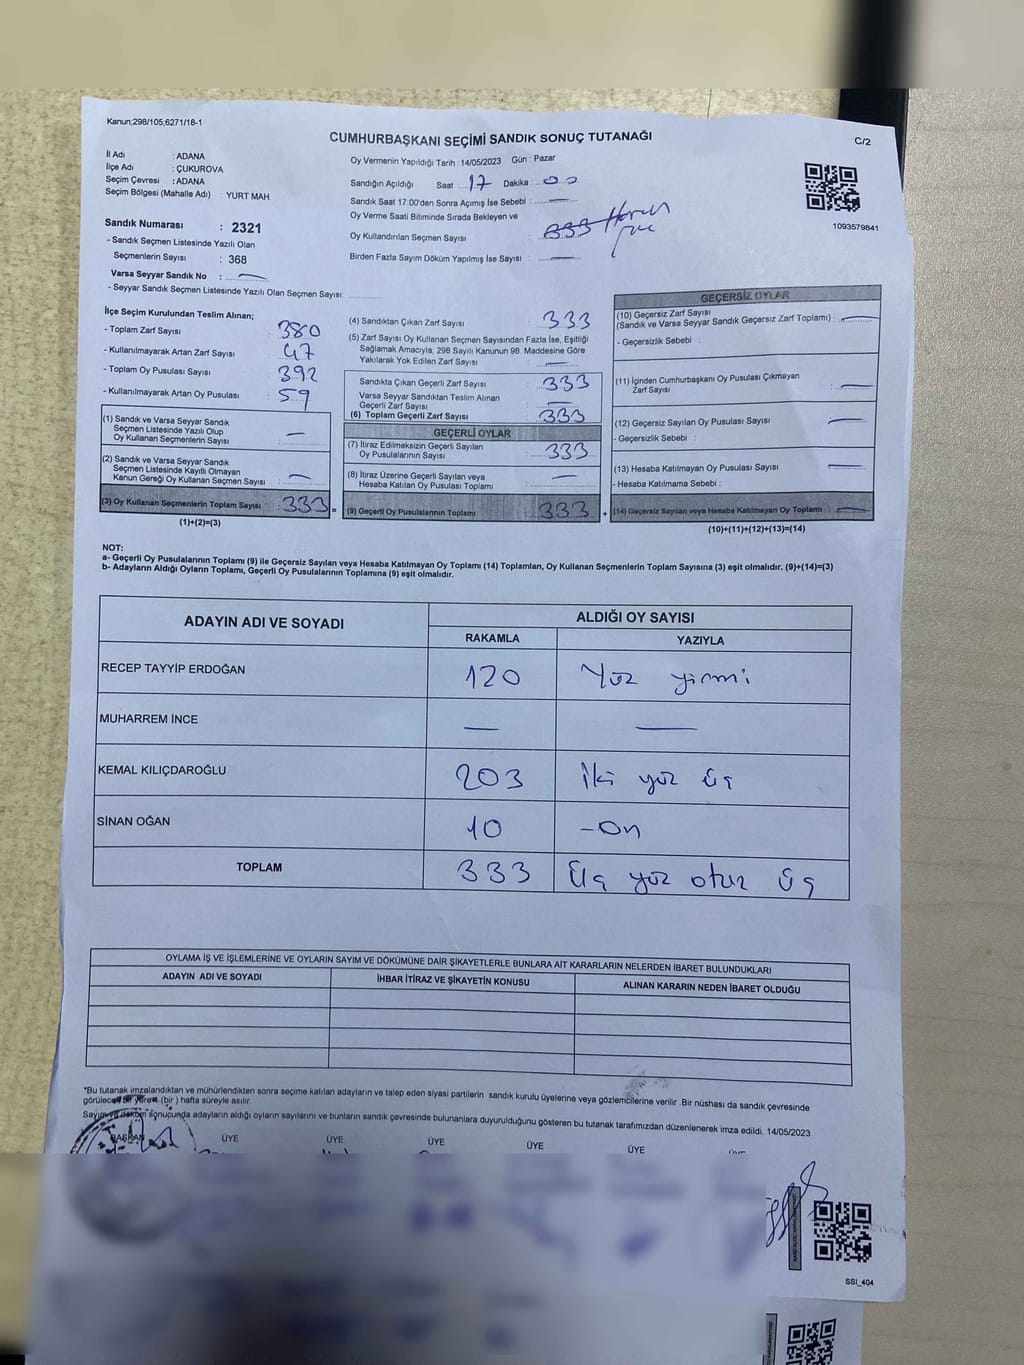 Kanun;298/105,6271/18-1
CUMHURBAŞKANI SEÇİMİ SANDIK SONUÇ TUTANAĞI
C/2
İl Adı : ADANA
İlçe Adı : ÇUKUROVA
Seçim Çevresi : ADANA
Seçim Bölgesi (Mahalle Adı) : YURT MAH
Sandık Numarası : 2321
- Sandık Seçmen Listesinde Yazılı Olan
Seçmenlerin Sayısı : 368
Varsa Seyyar Sandık No : —
- Seyyar Sandık Seçmen Listesinde Yazılı Olan Seçmen Sayısı:
Oy Vermenin Yapıldığı Tarih : 14/05/2023 Gün : Pazar
Sandığın Açıldığı Saat : 17 Dakika : 00
Sandık Saat 17:00'den Sonra Açımış İse Sebebi : —
Oy Verme Saati Bitiminde Sırada Bekleyen ve
Oy Kullandırılan Seçmen Sayısı : 333
Birden Fazla Sayım Döküm Yapılmış İse Sayısı : —
1093579841
İlçe Seçim Kurulundan Teslim Alınan;
- Toplam Zarf Sayısı : 380
- Kullanılmayarak Artan Zarf Sayısı : 47
- Toplam Oy Pusulası Sayısı : 392
- Kullanılmayarak Artan Oy Pusulası : 59
(1) Sandık ve Varsa Seyyar Sandık
Seçmen Listesinde Yazılı Olup
Oy Kullanan Seçmenlerin Sayısı : —
(2) Sandık ve Varsa Seyyar Sandık
Seçmen Listesinde Kayıtlı Olmayan
Kanun Gereği Oy Kullanan Seçmen Sayısı : —
(3) Oy Kullanan Seçmenlerin Toplam Sayısı : 333 =
(1)+(2)=(3)
(4) Sandıktan Çıkan Zarf Sayısı : 333
(5) Zarf Sayısı Oy Kullanan Seçmen Sayısından Fazla İse, Eşitliği
Sağlamak Amacıyla, 298 Sayılı Kanunun 98. Maddesine Göre
Yakılarak Yok Edilen Zarf Sayısı : —
Sandıkta Çıkan Geçerli Zarf Sayısı : 333
Varsa Seyyar Sandıktan Teslim Alınan
Geçerli Zarf Sayısı : —
(6) Toplam Geçerli Zarf Sayısı : 333
GEÇERLİ OYLAR
(7) İtiraz Edilmeksizin Geçerli Sayılan
Oy Pusulalarının Sayısı : 333
(8) İtiraz Üzerine Geçerli Sayılan veya
Hesaba Katılan Oy Pusulası Toplamı : —
(9) Geçerli Oy Pusulalarının Toplamı : 333 +
GEÇERSİZ OYLAR
(10) Geçersiz Zarf Sayısı
(Sandık ve Varsa Seyyar Sandık Geçersiz Zarf Toplamı) : —
- Geçersizlik Sebebi :
(11) İçinden Cumhurbaşkanı Oy Pusulası Çıkmayan
Zarf Sayısı : —
(12) Geçersiz Sayılan Oy Pusulası Sayısı : —
- Geçersizlik Sebebi :
(13) Hesaba Katılmayan Oy Pusulası Sayısı : —
- Hesaba Katılmama Sebebi :
(14) Geçersiz Sayılan veya Hesaba Katılmayan Oy Toplamı : —
(10)+(11)+(12)+(13)=(14)
NOT:
a- Geçerli Oy Pusulalarının Toplamı (9) ile Geçersiz Sayılan veya Hesaba Katılmayan Oy Toplamı (14) Toplamları, Oy Kullanan Seçmenlerin Toplam Sayısına (3) eşit olmalıdır. (9)+(14)=(3)
b- Adayların Aldığı Oyların Toplamı, Geçerli Oy Pusulalarının Toplamına (9) eşit olmalıdır.
ADAYIN ADI VE SOYADI
ALDIĞI OY SAYISI
RAKAMLA YAZIYLA
RECEP TAYYİP ERDOĞAN 120 Yüz yirmi
MUHARREM İNCE — —
KEMAL KILIÇDAROĞLU 203 İki yüz üç
SİNAN OĞAN 10 -On
TOPLAM 333 Üç yüz otuz üç
OYLAMA İŞ VE İŞLEMLERİNE VE OYLARIN SAYIM VE DÖKÜMÜNE DAİR ŞİKAYETLERLE BUNLARA AİT KARARLARIN NELERDEN İBARET BULUNDUKLARI
ADAYIN ADI VE SOYADI İHBAR İTİRAZ VE ŞİKAYETİN KONUSU ALINAN KARARIN NEDEN İBARET OLDUĞU
*Bu tutanak imzalandıktan ve mühürlendikten sonra seçime katılan adayların ve talep eden siyasi partilerin sandık kurulu üyelerine veya gözlemcilerine verilir .Bir nüshası da sandık çevresinde
görülecek bir yere (bir ) hafta süreyle asılır.
Sayım ve döküm sonuçunda adayların aldığı oyların sayılarını ve bunların sandık çevresinde bulunanlara duyurulduğunu gösteren bu tutanak tarafımızdan düzenlenerek imza edildi. 14/05/2023
BAŞKAN ÜYE ÜYE ÜYE ÜYE ÜYE
SSI_404